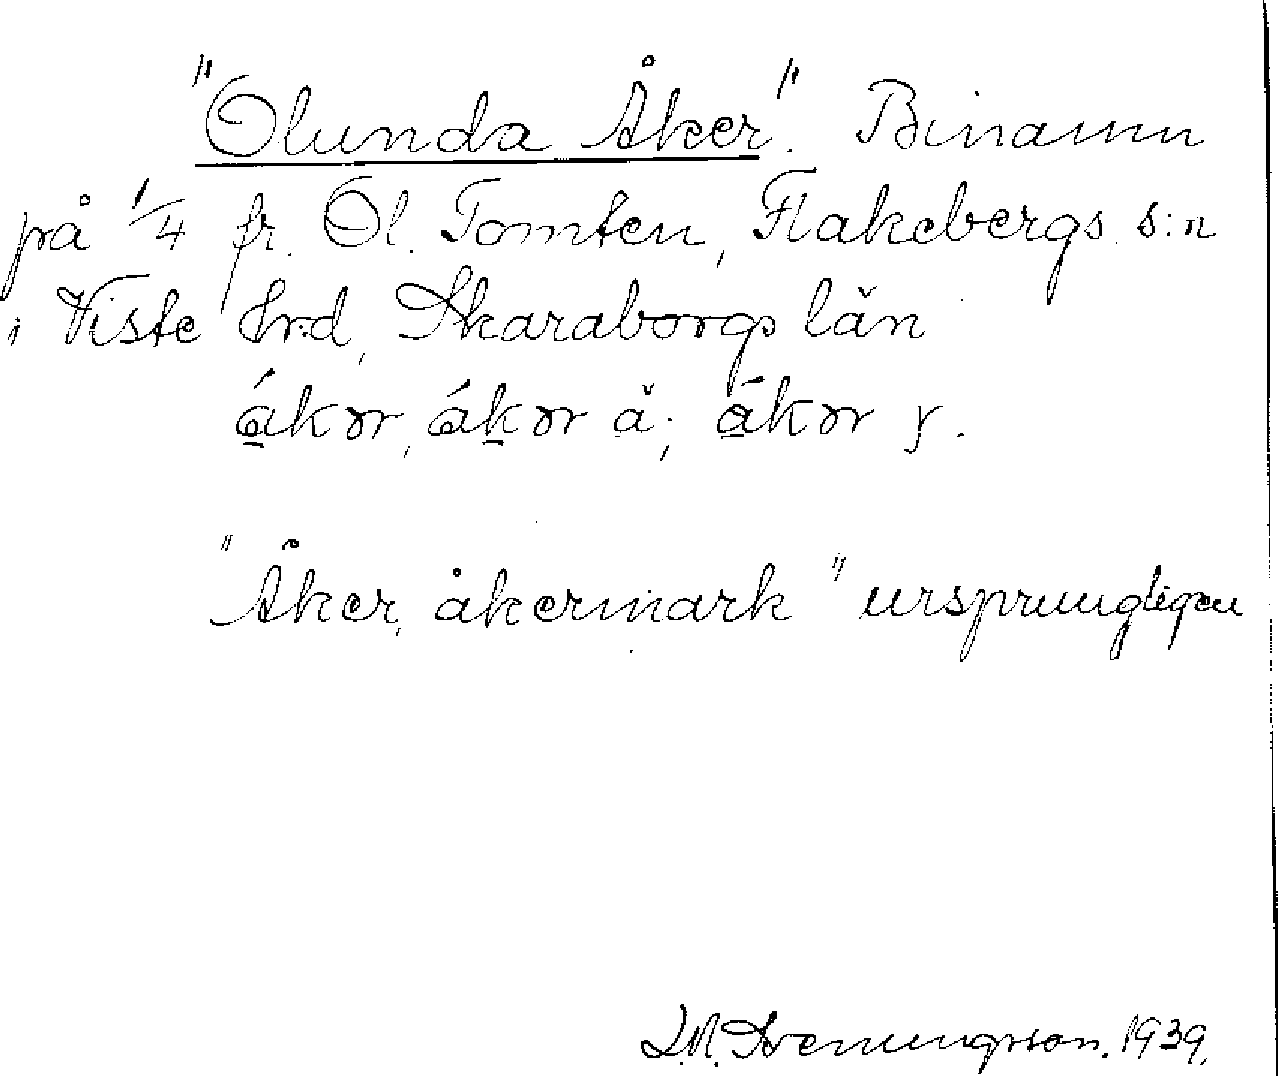 "Olunda Åker". Binamn
på 1/4 fr. Ol. Tomten, Flakebergs s:n
i Viste hrd, Skaraborgs län
ákər, ákər ä; ákər y.
"Åker, åkermark" ursprungligen
1939.